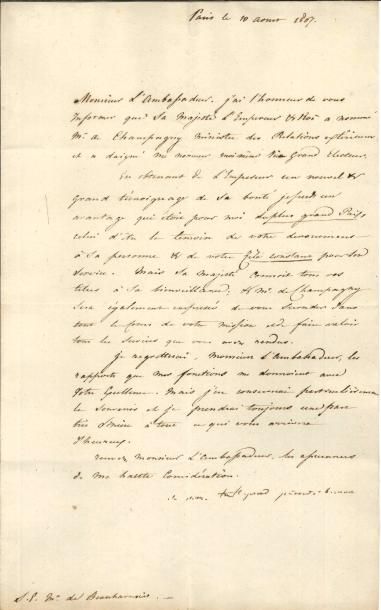 Paris le 10 aoust 1807.
Monsieur L'Ambassadeur, j'ai l'honneur de vous
informer que Sa Majesté L'Empereur & Roi a nommé
Mr. de Champagny ministre des Relations extérieures
et a daigné me nommer moi même Vice Grand Electeur.
En obtenant de L'Empereur un nouvel &
grand témoignage de Sa bonté je perds un
avantage qui étoit pour moi du plus grand Prix,
celui d'être le temoin de votre devouement
à Sa personne & de votre Zèle constant pour Son
Service. Mais Sa majesté connoit tous vos
titres à Sa bienveillance, & Mr. de Champagny
Sera également empressé de vous Seconder dans
tout le Cours de votre mission et de faire valoir
tous les Services que vous avez rendus.
Je regretterai, Monsieur L'Ambassadeur, les
rapports que mes fonctions me donnoient avec
Votre Excellence. Mais j'en conserverai particulièrement
le Souvenir et je prendrai toujours une part
très Sincère à tout ce qui vous arrivera
d'heureux.
recevez, Monsieur L'Ambassadeur, les assurances
de ma haute Considération.
S. E. Mr. de Beauharnais. —